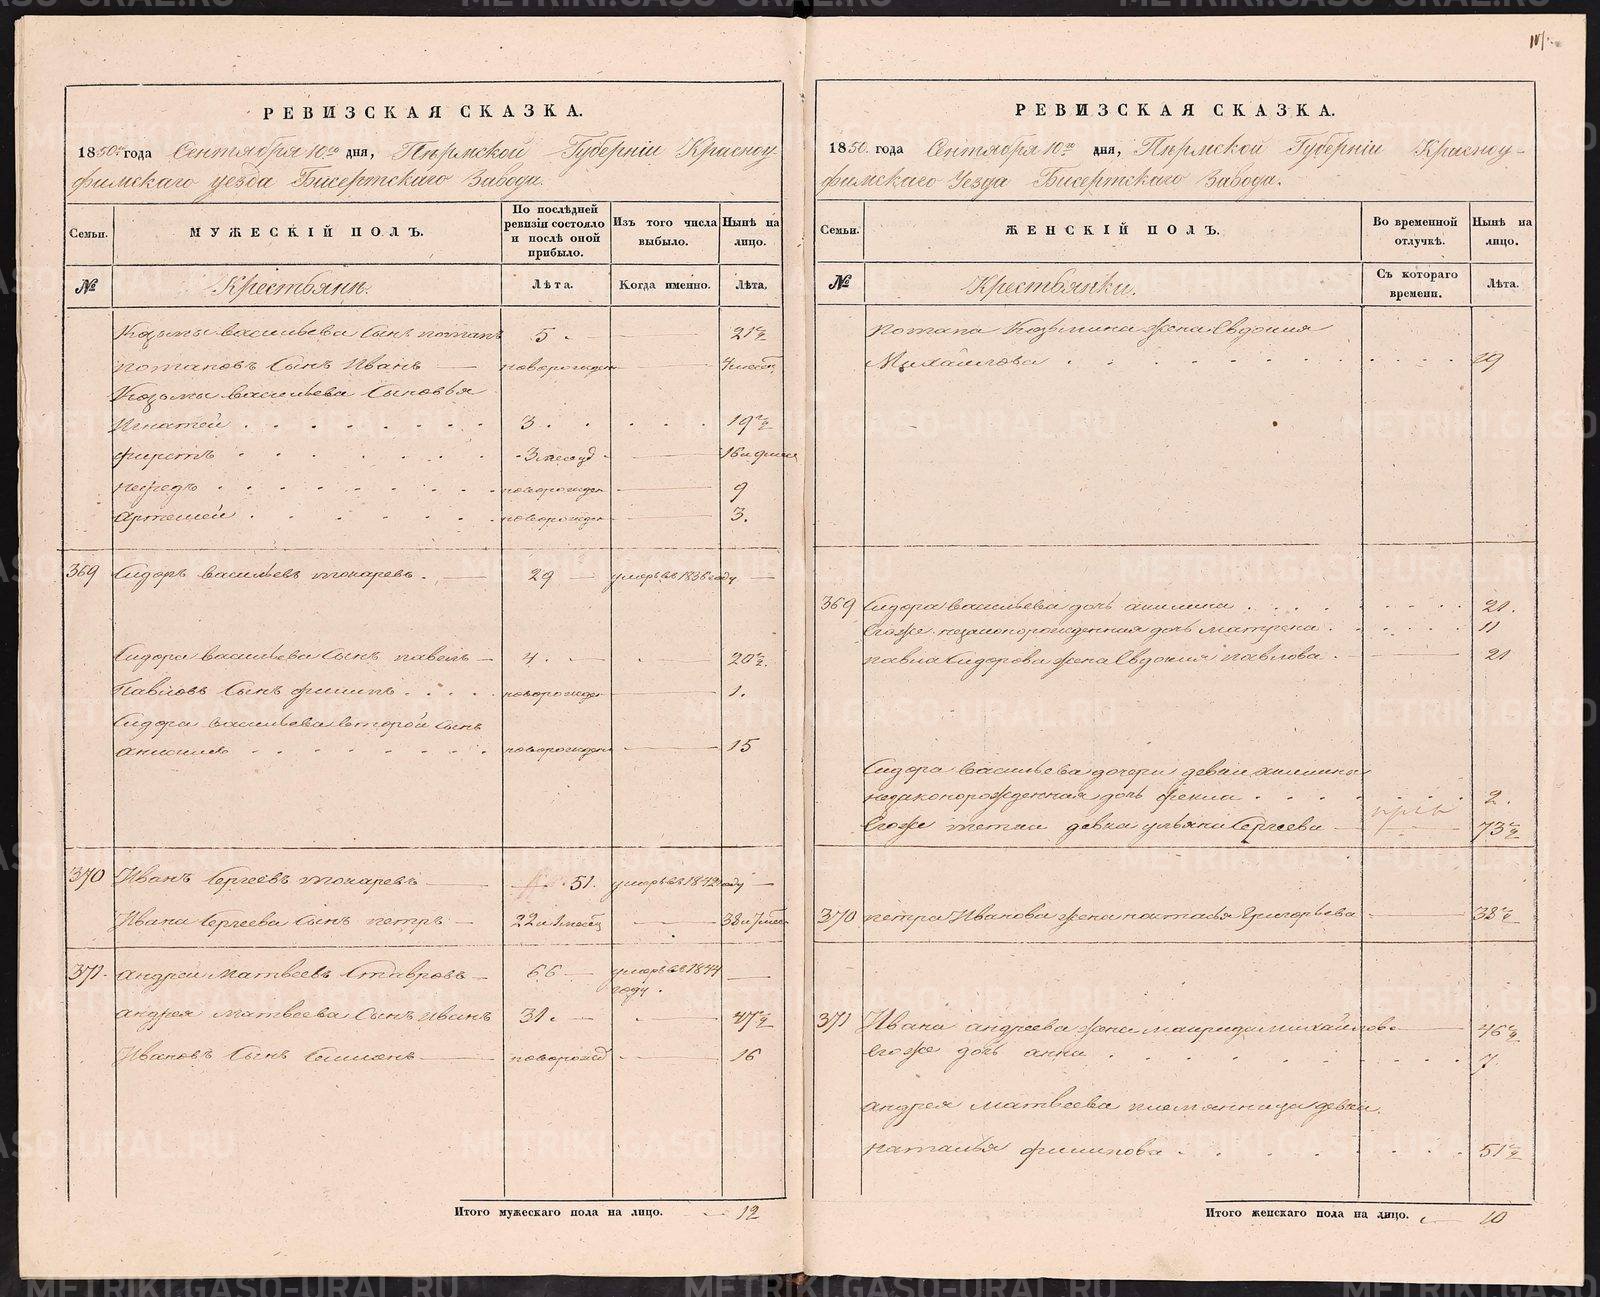 РЕВИЗСКАЯ СКАЗКА.
1850го года Сентября 10го дня, Пермской Губерніи Красноу-
фимскаго уезда Бисертскаго Завода.
Семьи. МУЖЕСКІЙ ПОЛЪ. По послѣдней ревизіи состояло и послѣ оной прибыло. Изъ того числа выбыло. Нынѣ на лицо.
№ Крестьяни. Лѣта. Когда именно. Лѣта.
Козьмы васильева Сынъ потапъ 5. 21 ½
потаповъ Сынъ Иванъ новорожден
Козьмы васильева Сыновья
Игнатей 3. 19 ½
фирсъ
новорожден 9
артемей новорожден 3.
369 Сидоръ васильевъ токаревъ. 29 умеръ въ 1836 году
Сидора васильева Сынъ павелъ 4. 20 ½.
Павловъ Сынъ филипъ новорожден 1.
Сидора васильева второй Сынъ
новорожден 15
370 Иванъ Сергеевъ токаревъ 51. умеръ въ 1842 году
Ивана Сергеева Сынъ петръ 38 и 7 мес
371. андрей матвеевъ Ставровъ 66 умеръ въ 1844
году.
андрея матвеева Сынъ Иванъ 31. 47 ½
Ивановъ Сынъ Симионъ новорожд 16
Итого мужескаго пола на лицо. 12
РЕВИЗСКАЯ СКАЗКА.
1850. года Сентября 10го дня, Пермской Губерніи Красноу-
фимскаго Уезда Бисертскаго Завода.
Семьи. ЖЕНСКІЙ ПОЛЪ. Во временной отлучкѣ. Нынѣ на лицо.
№ Крестьянки. Съ котораго времени. Лѣта.
потапа Козьмина жена Евдокия
Михайлова 29
369 Сидора васильева дочь акилина 21.
Егоже незаконорожденная дочь матрена 11
павла Сидорова жена Евдокия павлова 21
Сидора васильева дочери девки акилины
незаконорожденная дочь фекла 2.
Егоже тетка девка ульяна Сергеева 73 ½
370 петра Иванова жена настасья Григорьева 38 ½
371 Ивана андреева жена михайлова 46 ½
Егоже дочь анна 7
андрея матвеева племянница девка
наталья филипова 51 ½
Итого женскаго пола на лицо. 10
METRIKI.GASO-URAL.RU